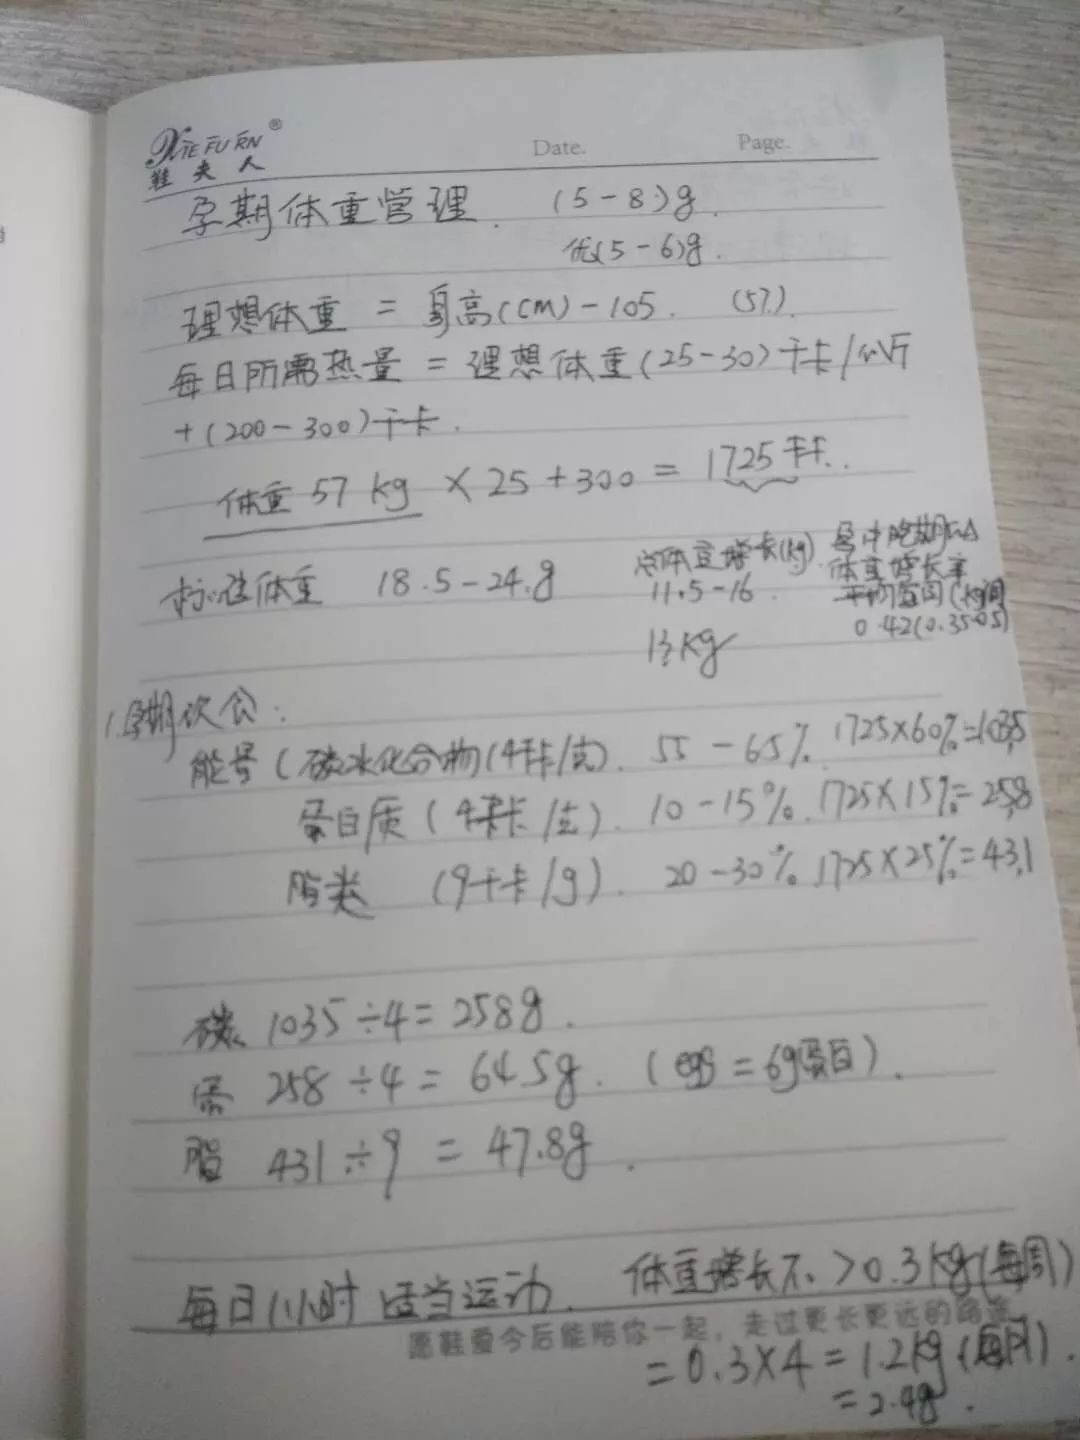 XIE FU REN®
鞋夫人
Date. Page.
孕期体重管理. (5-8)g.
优(5-6)g.
理想体重 = 身高(cm)-105. (57.)
每日所需热量 = 理想体重(25-30)千卡/公斤
+(200-300)千卡.
体重 57 kg × 25 + 300 = 1725 千卡.
总体重增长(kg). 孕中晚期
体重增长率
标准体重 18.5-24.g 11.5-16. 平均范围(kg/周)
0.42(0.35-0.5)
13kg
1.孕期饮食:
能量(碳水化合物(4千卡/克). 55-65% 1725×60%=1035
蛋白质(4千卡/克). 10-15%. 1725×15%=258
脂类 (9千卡/g). 20-30%. 1725×25%=431
碳 1035÷4=258g.
蛋 258÷4=64.5g. (egg=6g蛋白).
脂 431÷9=47.8g.
每日1小时适当运动. 体重增长不>0.3kg(每周)
愿鞋爱今后能陪你一起,走过更长更远的路途
=0.3×4=1.2kg(每月).